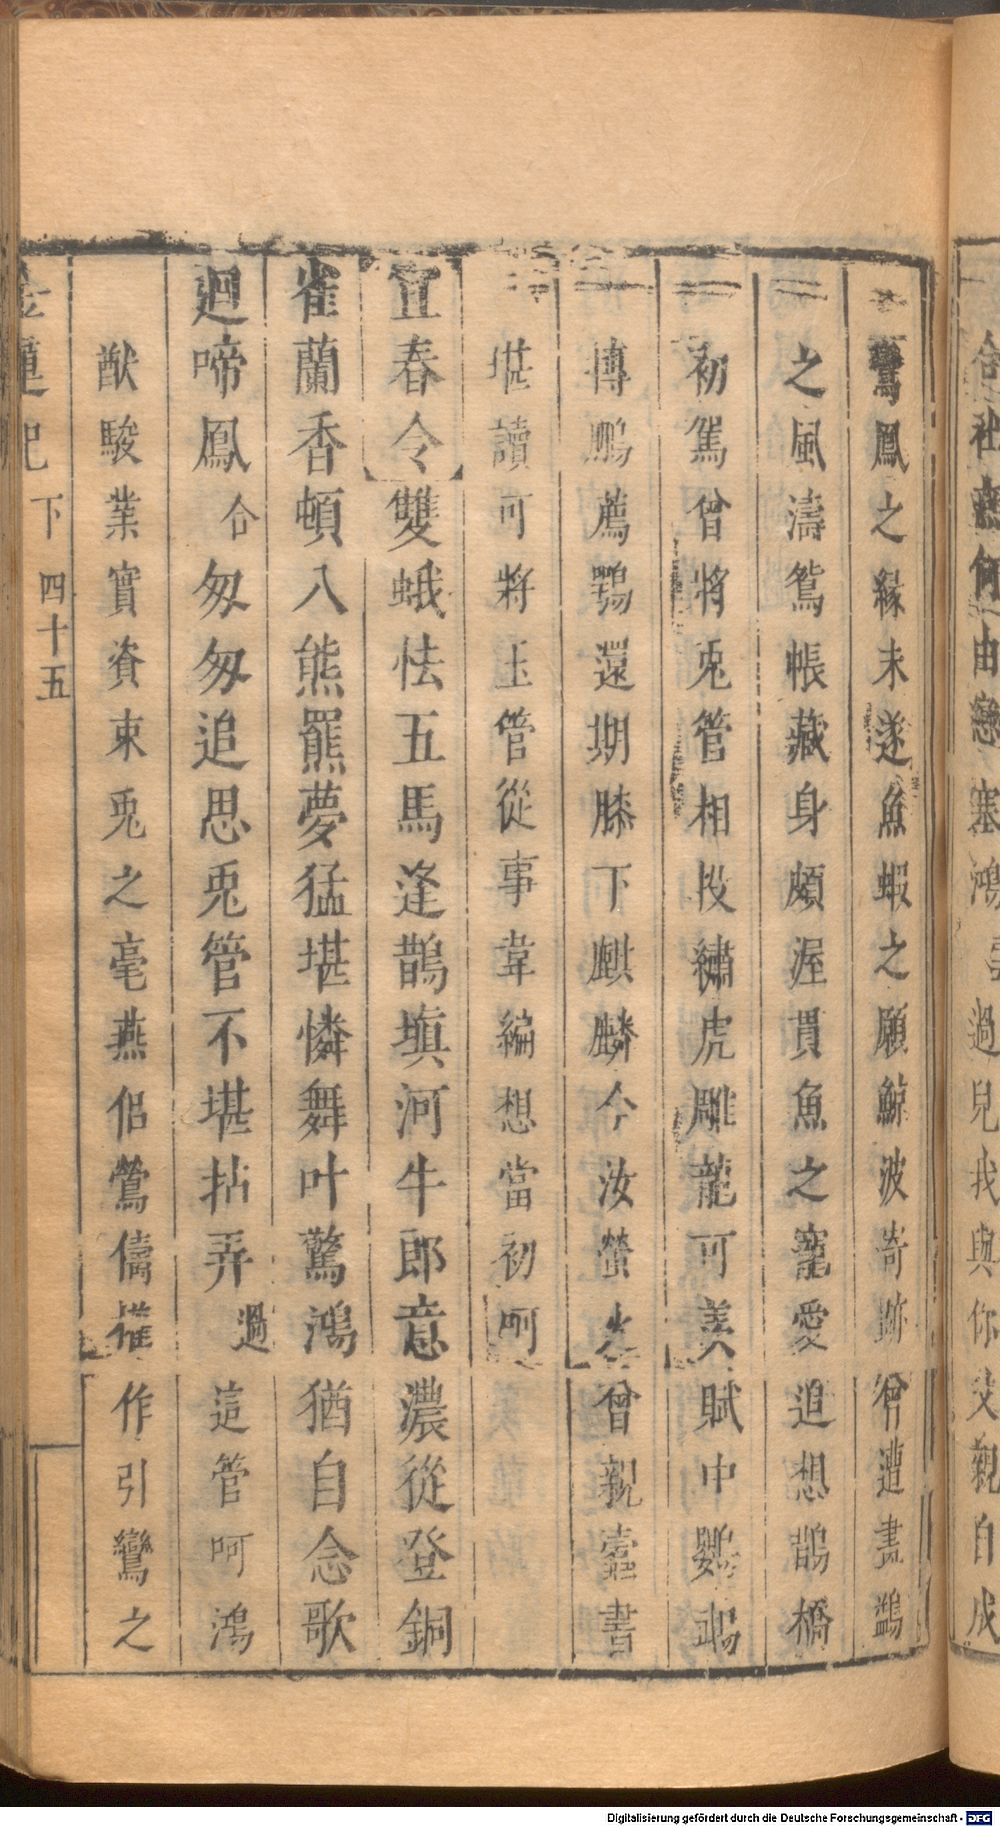 鸞鳳之緣未遂魚蝦之願鯨波嵜跡曾遭畫鷁
之風濤鴛帳藏身頗渥貫魚之寵愛追想鵲橋
初駕曾將兎管相投繡虎雕龍可羙賦中鸚鵡
博鵬薦鶚還期膝下麒麟今汝螢火曾親蠹書
堪讀可將玉管從事韋編想當初呵
宜春令雙蛾怯五馬逢鵲塡河牛郎意濃從登銅
雀蘭香頓入熊羆夢猛堪憐舞叶驚鴻猶自念歌
迴啼鳳合匆匆追思兎管不堪拈弄過這管呵鴻
猷駿業實資東兎之毫燕侶鶯儔權作引鸞之
記下 四十五
何由戀塞鴻雲過兒我與你父親自成
Digitalisierung gefördert durch die Deutsche Forschungsgemeinschaft - DFG